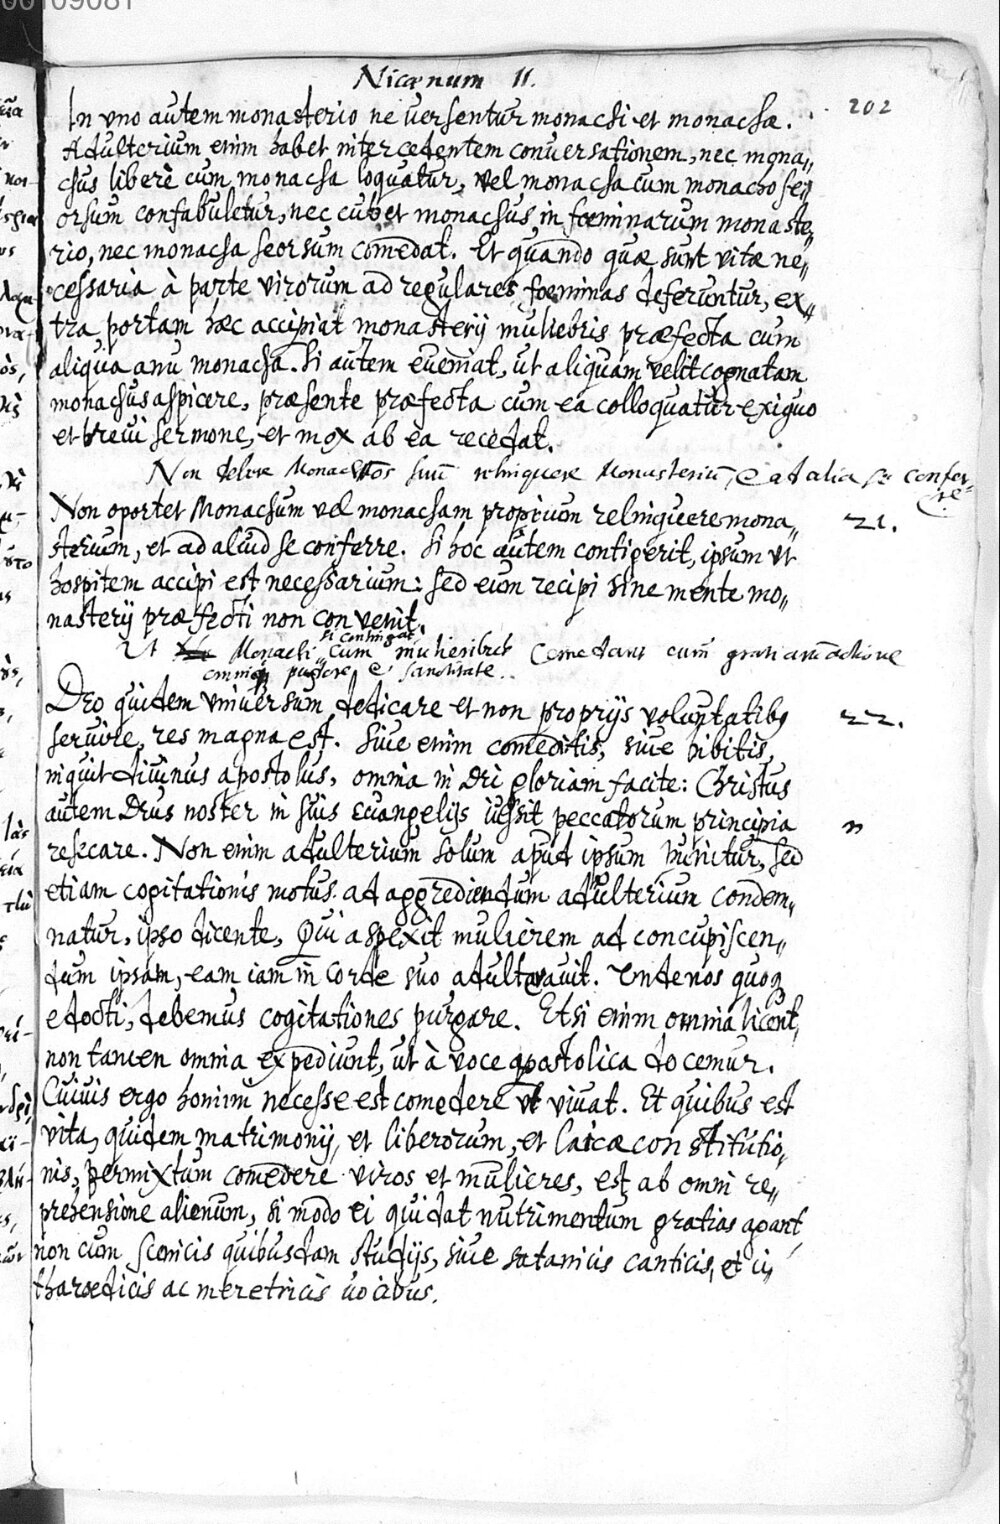 00109081
Nicænum II.
202
In vno autem monasterio ne uersentur monachi et monachæ.
Adulterium enim habet intercedentem conuersationem, nec mona„
chus liberè cum monacha loquatur, vel monacha cum monacho se„
orsum confabuletur, nec cubet monachus in fœminarum monaste„
rio, nec monacha seorsum comedat. Et quando quæ sunt vitæ ne„
cessaria à parte virorum ad regulares fœminas deferuntur, ex„
tra portam hæc accipiat monasterij muliebris præfecta cum
aliqua anu monacha. Si autem eueniat, ut aliquam velit cognatam
monachus aspicere, præsente præfecta cum ea colloquatur exiguo
et breui sermone, et mox ab ea recedat.
Non debere Monachos suū relinquere Monasteriū, & ad alia se confer„
re.
Non oportet Monachum vel monacham proprium relinquere mona„
21.
sterium, et ad aliud se conferre. Si hoc autem contigerit, ipsum ut
hospitem accipi est necessarium: sed eum recipi sine mente mo„
nasterij præfecti non convenit.
si contingat
Ut Monachi cum mulieribus comedant cum gratiarū actione
omniq, pudore, & sanctitate.
Deo quidem vniuersum dedicare et non proprijs voluptatibꝫ
22.
seruire, res magna est. Siue enim comeditis, siue bibitis,
inquit diuinus apostolus, omnia in Dei gloriam facite: Christus
autem Deus noster in suis Euangelijs iussit peccatorum principia
n
resecare. Non enim adulterium solum apud ipsum punitur, sed
etiam cogitationis motus ad aggrediendum adulterium condem„
natur, ipso dicente, Qui aspexit mulierem ad concupiscen„
dum ipsam, eam iam in corde suo adulterauit. Unde nos quoq
edocti, debemus cogitationes purgare. Etsi enim omnia licent,
non tamen omnia expediunt, ut à voce apostolica docemur.
Cuiuis ergo homini necesse est comedere ut viuat. Et quibus est
vita, quidem matrimonij, et liberorum, et laicæ constitutio„
nis, permixtum comedere viros et mulieres, est ab omni re„
prehensione alienum, si modo ei qui dat nutrimentum gratias agant,
non cum scenicis quibusdam studijs, siue satanicis canticis, et ci„
tharœdicis ac meretricis uocibus.